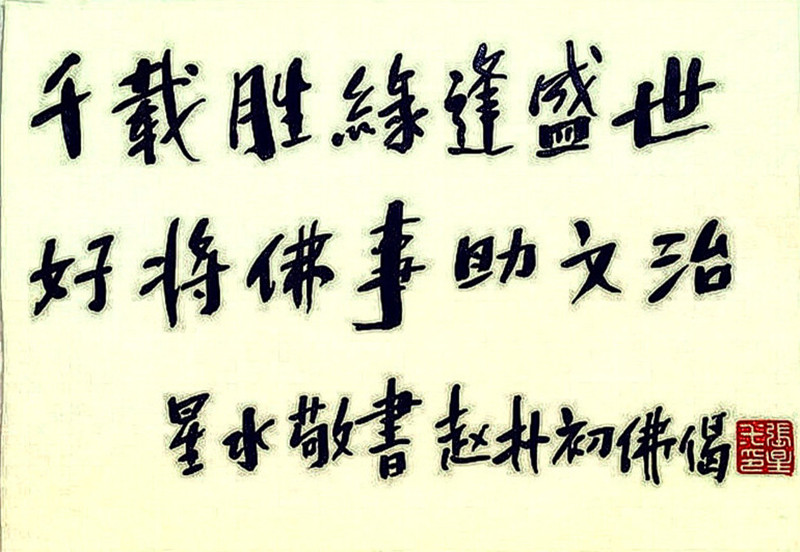 千载胜緣逢盛世
好将佛事助文治
星水敬書赵朴初佛偈